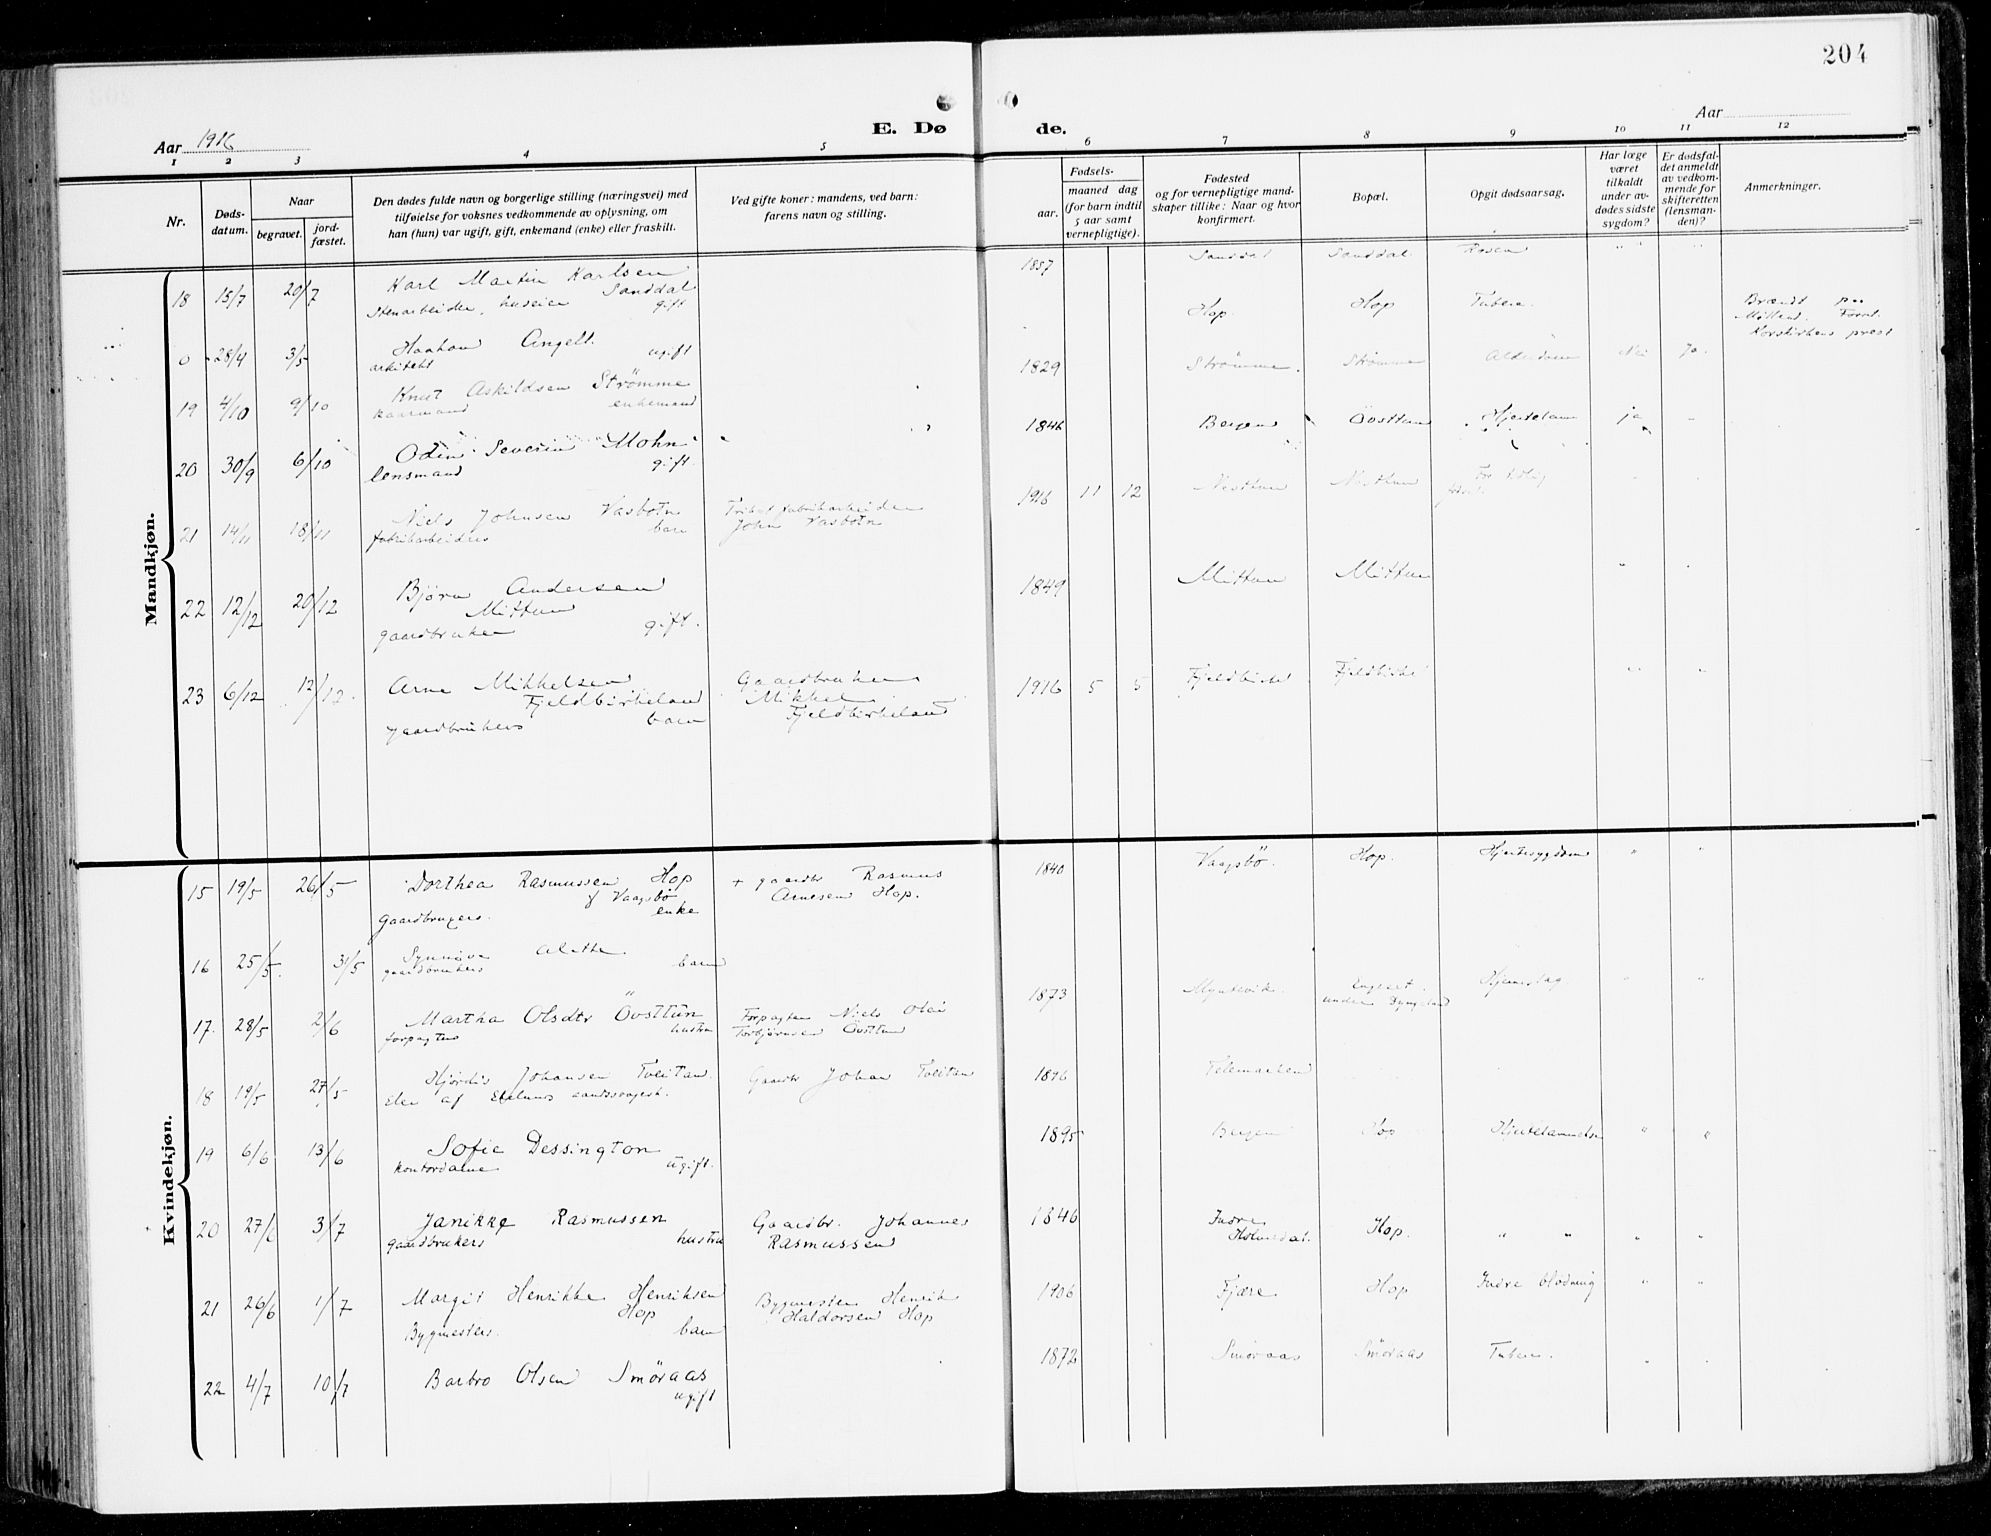 204
E. Døde.
Aar 1916
Aar
1 2 3 4 5 6 7 8 9 10 11 12
Nr.
Døds-
datum.
Naar
begravet.
jord-
fæstet.
Den dødes fulde navn og borgerlige stilling (næringsvei) med
tilføielse for voksnes vedkommende av oplysning, om
han (hun) var ugift, gift, enkemand (enke) eller fraskilt.
Ved gifte koner: mandens, ved barn:
farens navn og stilling.
Fødsels-
aar.
maaned dag
(for barn indtil
5 aar samt
vernepligtige).
Fødested
og for vernepligtige mand-
skaper tillike: Naar og hvor
konfirmert.
Bopæl.
Opgit dødsaarsag.
Har læge
været
tilkaldt
under av-
dødes sidste
sygdom?
Er dødsfal-
det anmeldt
av vedkom-
mende for
skifteretten
(lensman-
den)?
Anmerkninger.
Mandkjøn.
18 15/7 20/7 Karl Martin Karlsen 1857 Sanddal Sanddal Rosen " "
Sanddal
Stenarbeider, huseier gift
0 28/4 3/5 Haakon Angell Hop. Hop Tuberk. Brændt paa
arkitekt ugift Møllend. Forret.
Korskirkens prest
19 4/10 9/10 Knut Askildsen Strömme 1829 Strömme. Strömme Alderdom Nei Ja.
kaarmand enkemand
20 30/9 6/10 Odin Severin Mohn 1846 Bergen Öosttun Hjertelam ja
lensmand gift.
21 14/11 18/11 Niels Johnsen Vasbotn Trikot fabrikarbeider 1916 11 12 Nesttun Nesttun For tidlig
fabrikarbeiders barn John Vasbotn
22 12/12 20/12 Bjørn Andersen 1849 Mittun Mittun " "
Mittun
gaardbruker gift.
23 6/12 12/12. Arne Mikkelsen Gaardbruker 1916 5 5 " "
Fjeldbirkeland Mikkel
gaardbrukers barn Fjeldbirkeland
Kvindekjøn.
15 19/5 26/5 Dorthea Rasmussen Hop + gaardbr Rasmus 1840 Vaagsbö. Hop. Hjertesygdom " "
f Vaagsbö Arnesen Hop.
Gaardbrugers. enke
16 25/5. 31/5 Synnöve Alethe
gaardbrukers barn
17. 28/5 2/6 Martha Olsdtr Öosttun Forpagter Niels Olai 1873 " "
forpagters hustru Torbjørnsen Östtun under
18 19/5 27/5 Hjørdis Johansen Tveitan. Gaardbr Johan Tveitan 1896 Telemarken
elev af
19 6/6 13/6 Sofie Dessington 1895 Bergen Hop Hjertelammelse " "
kontordame ugift.
20 27/6 3/7 Janikke Rasmussen Gaardbr. Johannes 1846 Indre Hop. " " " "
gaardbrukers hustru Rasmussen
21 26/6 1/7 Margit Henrikke Henriksen Bygmester Henrik 1906 Fjære Hop Indre blödning " "
Hop Haldorsen Hop
Bygmesters. barn
22 4/7 10/7 Barbro Olsen Smöraas 1872 Smöraas Smöraas Tuberk.
ugift